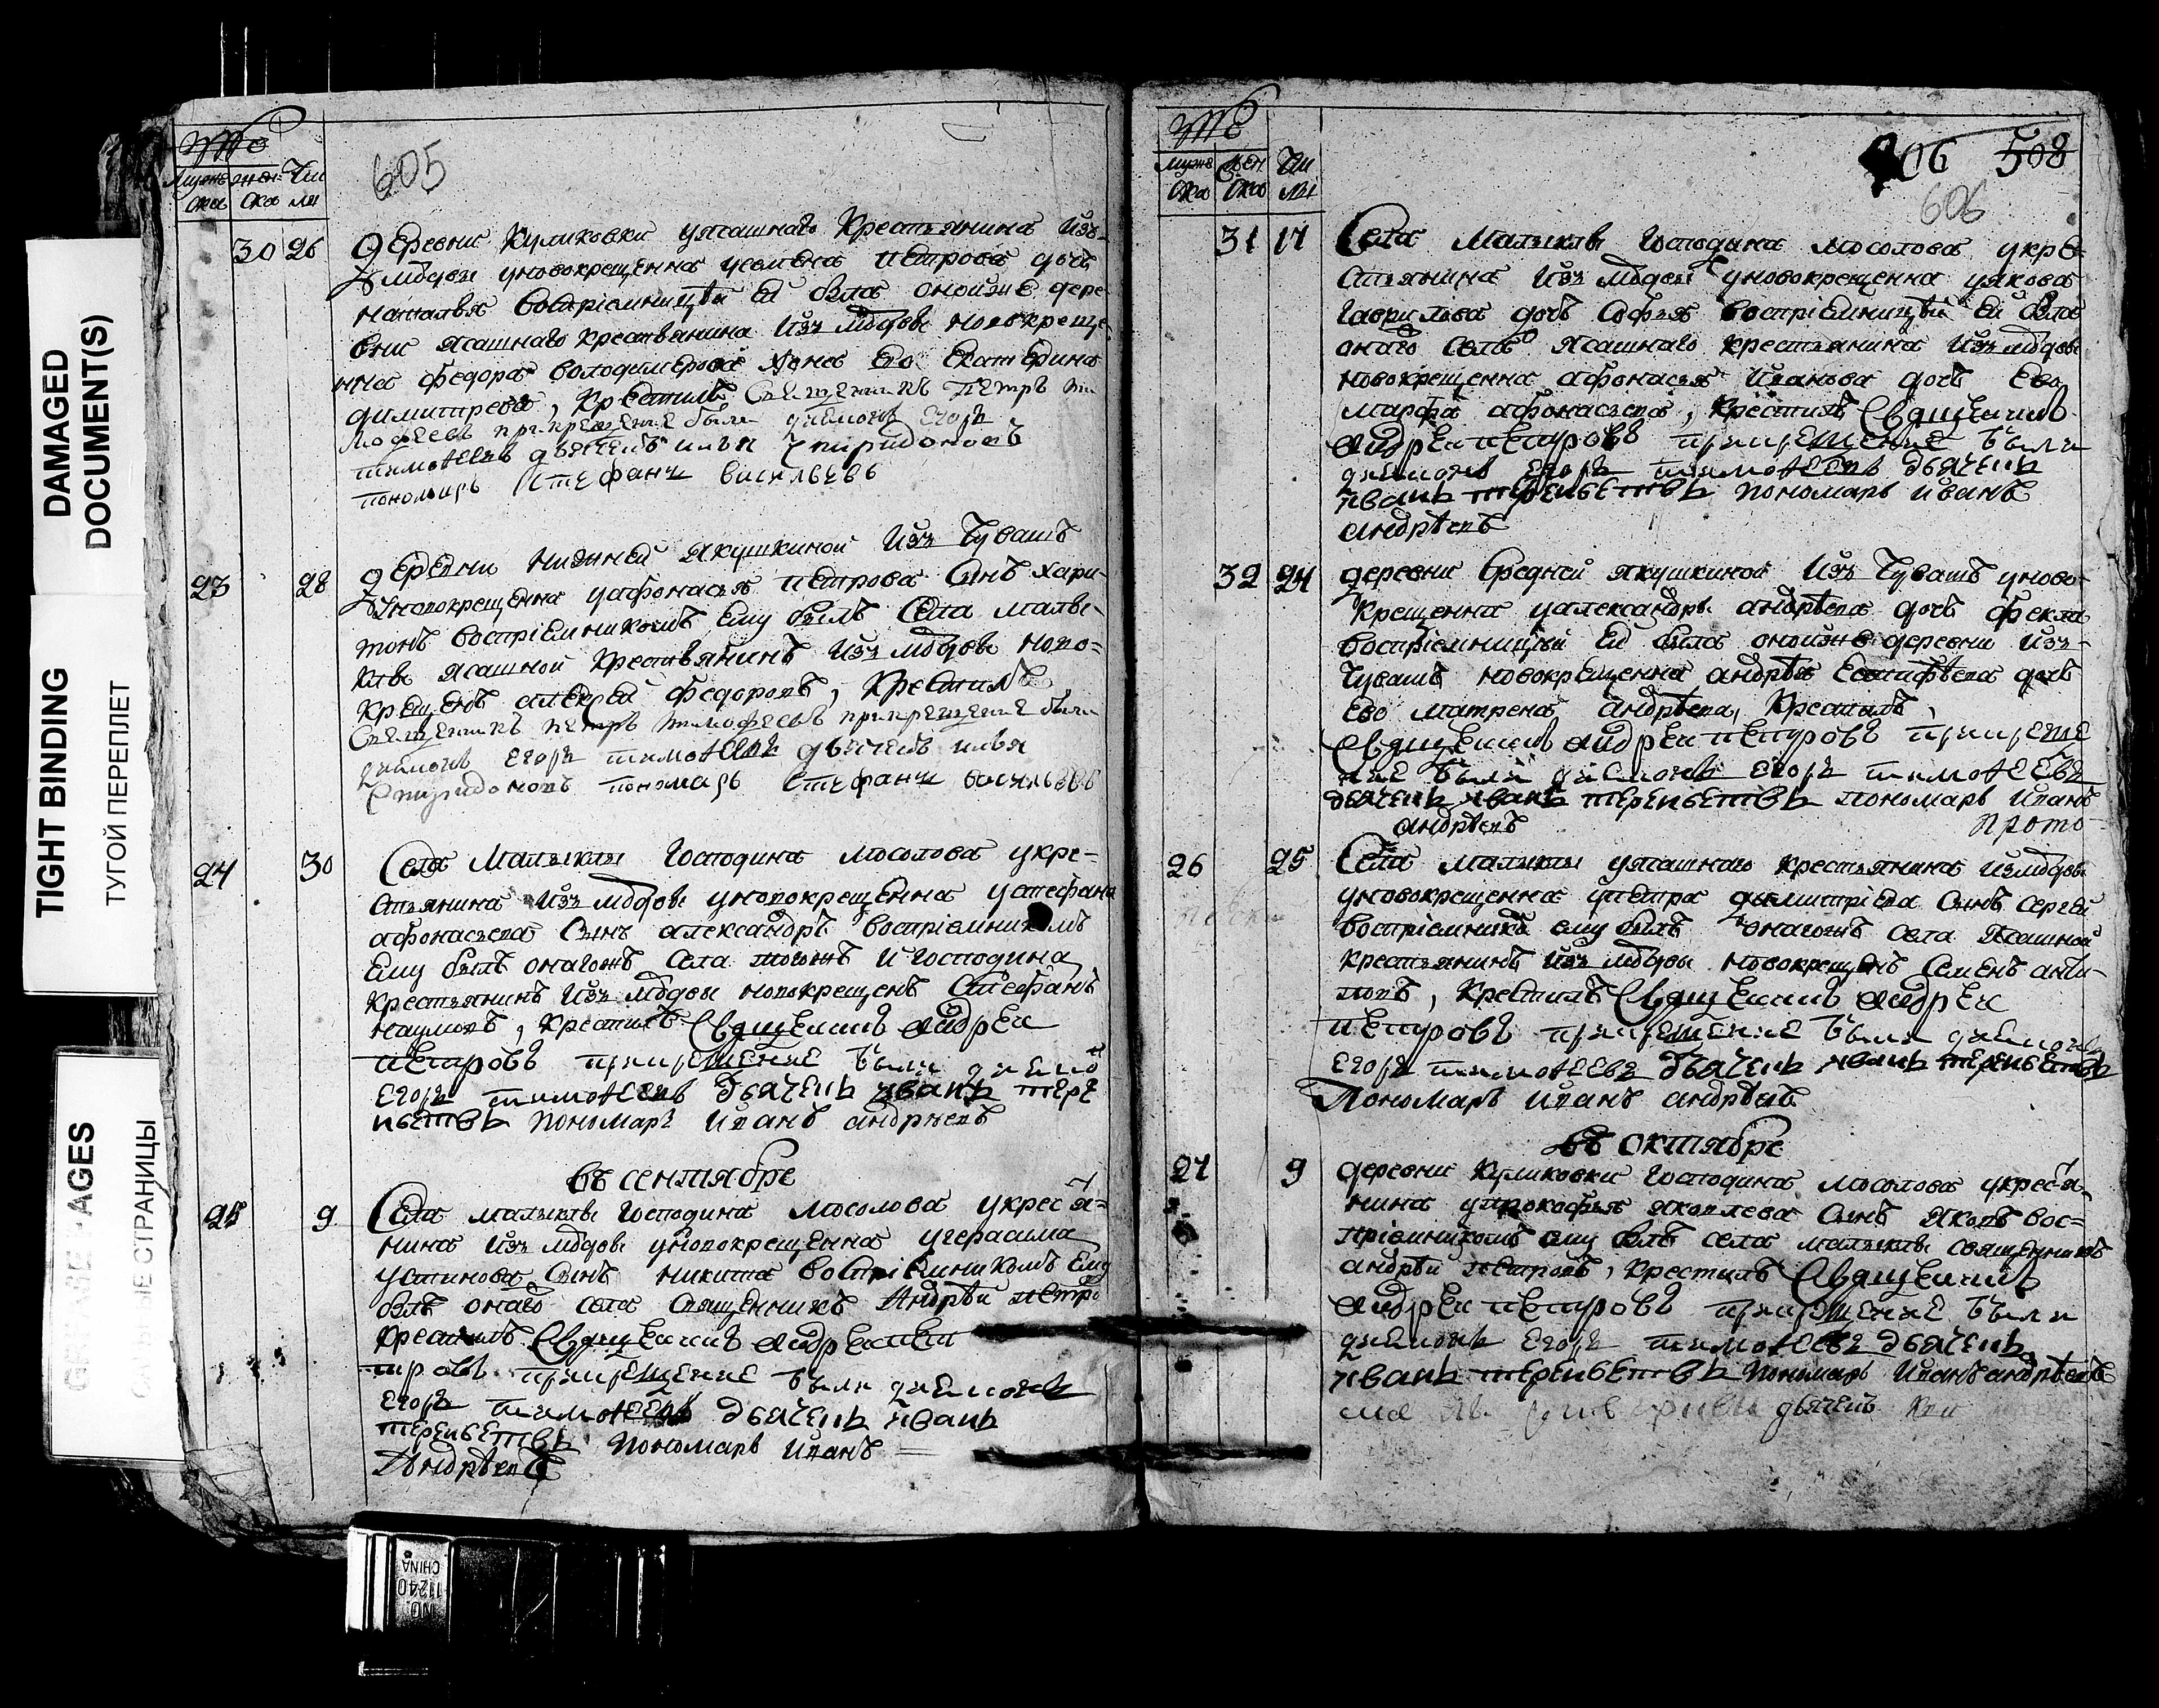 DAMAGED
DOCUMENT(S)
TIGHT BINDING
ТУГОЙ ПЕРЕПЛЕТ
AGES
СТРАНИЦЫ
605
Мужеска Женска Числа
30 26 Деревни Куликовки уясашнаго Крестьянина Изъ
Мордвы уновокрещенна Петрова дочь
наталья Воспріемницей ей была оной же дере
вни ясашнаго крестьянина Изъ мордвы новокреще
нна федора володимерова Жена Ево Екатерина
димитрева, Крестилъ Священникъ Петръ ти
мофеевъ прикрещение были диаконъ Егоръ
тимофеевъ дьячекъ илья Спиридоновъ
пономарь Стефанъ васильевъ
23 28 Деревни Нижней Якушкиной Изъ Чувашъ
уновокрещенна уафонасья петрова Сынъ Хари
тонъ воспріемникомъ Ему былъ Села Малы
клы ясашной Крестьянинъ Изъ мордвы ново=
крещенъ алексей федоровъ, Крестилъ
Священникъ петръ тимофеевъ прикрещение были
диаконъ Егоръ тимофеевъ дьячекъ илья
Спиридоновъ пономарь Стефанъ васильевъ
24 30 Села Малыклы Господина Мосолова укре=
стьянина Изъ мордвы уновокрещенна устефана
афонасьева Сынъ александръ воспріемникомъ
Ему былъ онагожъ Села тогожъ И господина
Крестьянинъ Изъ мордвы новокрещенъ Стефанъ
наумовъ, Крестилъ Священникъ андреи
петровъ прикрещение были диаконъ
Егоръ тимофеевъ дьячекъ иванъ тере
ньтевъ Пономарь Иванъ андреевъ
въ сентябре
25 9 Села малыклы Господина Мосолова укресья=
нина Изъ мордвы уновокрещенна угерасима
устинова Сынъ никита воспріемникомъ Ему
былъ онаго села Священникъ Андрѣй петро
Крестилъ Священникъ андреи пе
тровъ прикрещение были диаконъ
Егоръ тимофеевъ дьячекъ иванъ
тереньтевъ Пономарь Иванъ =
Андрѣевъ
06 508
606
Мужеска Женска Числа
31 17 Села Малыклы Господина Мосолова укре=
стьянина Изъ мордвы уновокрещенна уякова
Гаврилова дочь Софья воспріемницей Ей была
онаго Села ясашнаго крестьянина Изъ мордвы
новокрещенна афонасья Иванова дочь Ево
марфа афонасьева, Крестилъ Священникъ
андреи петровъ прикрещение были
диаконъ Егоръ тимофеевъ дьячекъ
иванъ тереньтевъ Пономарь иванъ
андрѣевъ
32 24 деревни Средней якушкиной Изъ Чувашъ уново=
крещенна уалександры андрѣева дочь фекла
воспріемницей Ей была онойже деревни Изъ=
Чувашъ новокрещенна андрѣя дочь
Ево матрена андрѣева, Крестилъ,
Священникъ андреи петровъ прикреще
ние были диаконъ Егоръ тимофеевъ
дьячекъ иванъ тереньтевъ пономарь Иванъ
андрѣевъ прото
26 25 Села малыклы уясашнаго крестьянина Изъмордвы
уновокрещенна упетра димитріева Сынъ Сергей
воспріемникъ ему былъ онагожъ села Ясашной
крестьянинъ Изъ мордвы новокрещенъ Семенъ анти=
повъ, Крестилъ Священникъ андреи
петровъ прикрещение были диаконъ
Егоръ тимофеевъ дьячекъ иванъ тереньтевъ
Пономарь Иванъ андрѣевъ
въ октябре
27 9 деревни Куликовки Господина мосолова укресья=
нина упрокофья яковлева Сынъ Яковъ вос=
пріемникомъ ему былъ села малыклы священникъ
андрѣй петровъ, Крестилъ Священникъ
андреи петровъ прикрещение были
диаконъ Егоръ тимофеевъ дьячекъ
иванъ тереньтевъ Пономарь Иванъ андрѣевъ
дьячекъ
NO.
11240
CHINA